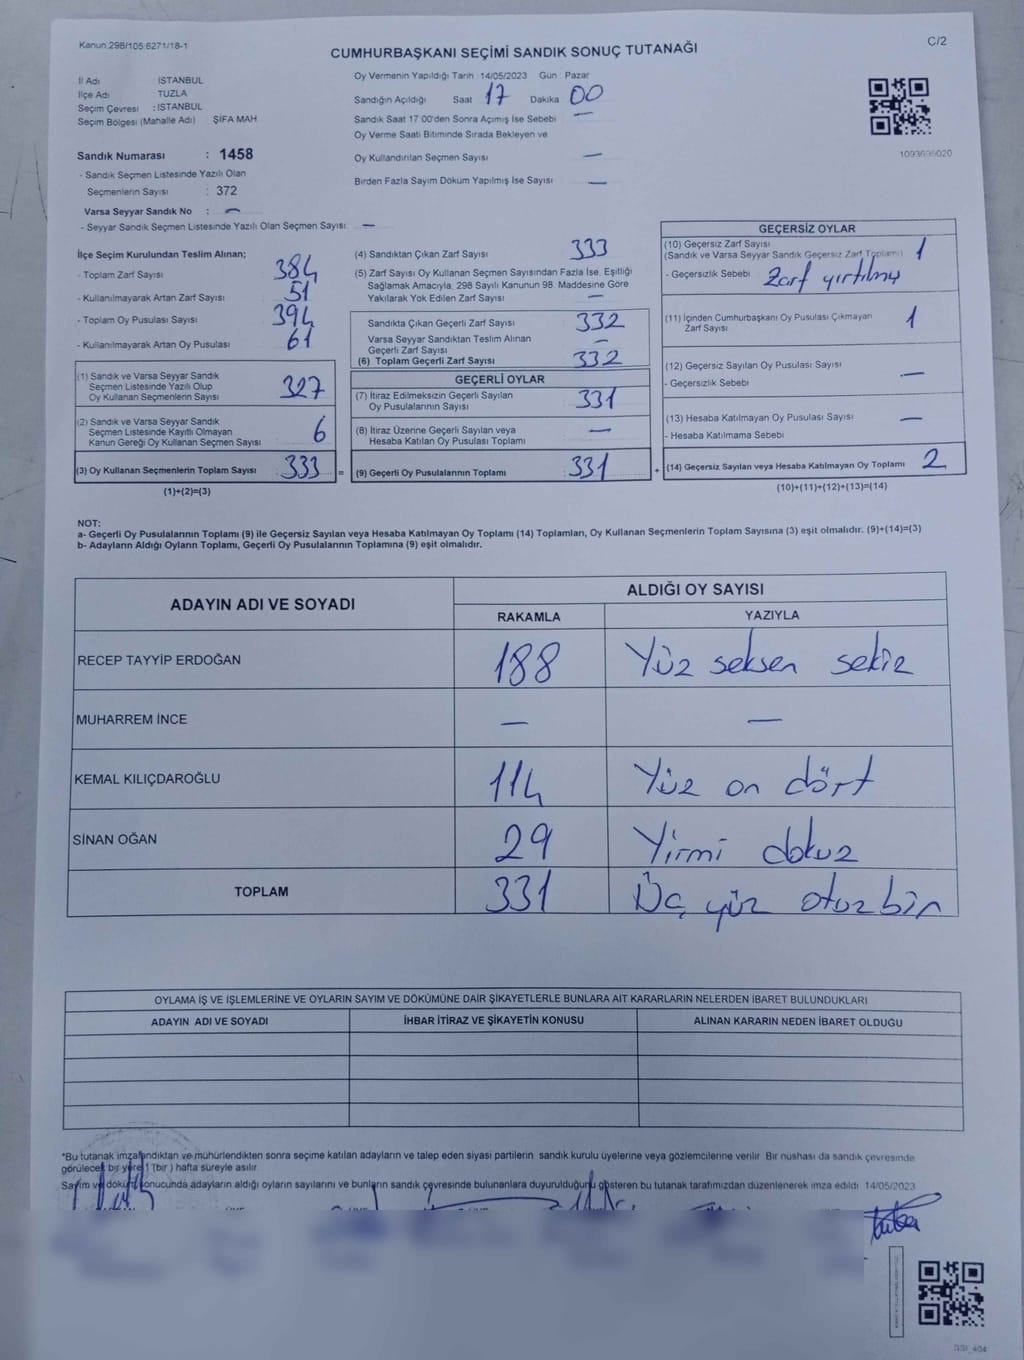 Kanun:298/105:6271/18-1
C/2
CUMHURBAŞKANI SEÇİMİ SANDIK SONUÇ TUTANAĞI
İl Adı : İSTANBUL
İlçe Adı : TUZLA
Seçim Çevresi : İSTANBUL
Seçim Bölgesi (Mahalle Adı) : ŞİFA MAH
Sandık Numarası : 1458
- Sandık Seçmen Listesinde Yazılı Olan
Seçmenlerin Sayısı : 372
Varsa Seyyar Sandık No : —
- Seyyar Sandık Seçmen Listesinde Yazılı Olan Seçmen Sayısı: —
Oy Vermenin Yapıldığı Tarih 14/05/2023 Gün Pazar
Sandığın Açıldığı Saat 17 Dakika 00
Sandık Saat 17:00'den Sonra Açımış İse Sebebi —
Oy Verme Saati Bitiminde Sırada Bekleyen ve
Oy Kullandırılan Seçmen Sayısı —
Birden Fazla Sayım Döküm Yapılmış İse Sayısı —
1093695020
İlçe Seçim Kurulundan Teslim Alınan;
- Toplam Zarf Sayısı 384
- Kullanılmayarak Artan Zarf Sayısı 51
- Toplam Oy Pusulası Sayısı 394
- Kullanılmayarak Artan Oy Pusulası 61
(1) Sandık ve Varsa Seyyar Sandık
Seçmen Listesinde Yazılı Olup
Oy Kullanan Seçmenlerin Sayısı 327
(2) Sandık ve Varsa Seyyar Sandık
Seçmen Listesinde Kayıtlı Olmayan
Kanun Gereği Oy Kullanan Seçmen Sayısı 6
(3) Oy Kullanan Seçmenlerin Toplam Sayısı 333 =
(1)+(2)=(3)
(4) Sandıktan Çıkan Zarf Sayısı 333
(5) Zarf Sayısı Oy Kullanan Seçmen Sayısından Fazla İse, Eşitliği
Sağlamak Amacıyla, 298 Sayılı Kanunun 98. Maddesine Göre
Yakılarak Yok Edilen Zarf Sayısı —
Sandıkta Çıkan Geçerli Zarf Sayısı 332
Varsa Seyyar Sandıktan Teslim Alınan
Geçerli Zarf Sayısı —
(6) Toplam Geçerli Zarf Sayısı 332
GEÇERLİ OYLAR
(7) İtiraz Edilmeksizin Geçerli Sayılan
Oy Pusulalarının Sayısı 331
(8) İtiraz Üzerine Geçerli Sayılan veya
Hesaba Katılan Oy Pusulası Toplamı —
(9) Geçerli Oy Pusulalarının Toplamı 331 +
GEÇERSİZ OYLAR
(10) Geçersiz Zarf Sayısı
(Sandık ve Varsa Seyyar Sandık Geçersiz Zarf Toplamı) 1
- Geçersizlik Sebebi Zarf yırtılmış
(11) İçinden Cumhurbaşkanı Oy Pusulası Çıkmayan
Zarf Sayısı 1
(12) Geçersiz Sayılan Oy Pusulası Sayısı
- Geçersizlik Sebebi —
(13) Hesaba Katılmayan Oy Pusulası Sayısı —
- Hesaba Katılmama Sebebi
(14) Geçersiz Sayılan veya Hesaba Katılmayan Oy Toplamı 2
(10)+(11)+(12)+(13)=(14)
NOT:
a- Geçerli Oy Pusulalarının Toplamı (9) ile Geçersiz Sayılan veya Hesaba Katılmayan Oy Toplamı (14) Toplamları, Oy Kullanan Seçmenlerin Toplam Sayısına (3) eşit olmalıdır. (9)+(14)=(3)
b- Adayların Aldığı Oyların Toplamı, Geçerli Oy Pusulalarının Toplamına (9) eşit olmalıdır.
ADAYIN ADI VE SOYADI
ALDIĞI OY SAYISI
RAKAMLA YAZIYLA
RECEP TAYYİP ERDOĞAN 188 Yüz seksen sekiz
MUHARREM İNCE — —
KEMAL KILIÇDAROĞLU 114 Yüz on dört
SİNAN OĞAN 29 Yirmi dokuz
TOPLAM 331 Üç yüz otuz bir
OYLAMA İŞ VE İŞLEMLERİNE VE OYLARIN SAYIM VE DÖKÜMÜNE DAİR ŞİKAYETLERLE BUNLARA AİT KARARLARIN NELERDEN İBARET BULUNDUKLARI
ADAYIN ADI VE SOYADI İHBAR İTİRAZ VE ŞİKAYETİN KONUSU ALINAN KARARIN NEDEN İBARET OLDUĞU
*Bu tutanak imzalandıktan ve mühürlendikten sonra seçime katılan adayların ve talep eden siyasi partilerin sandık kurulu üyelerine veya gözlemcilerine verilir. Bir nüshası da sandık çevresinde
görülecek bir yere 1 (bir) hafta süreyle asılır.
Sayım ve döküm sonucunda adayların aldığı oyların sayılarını ve bunların sandık çevresinde bulunanlara duyurulduğunu gösteren bu tutanak tarafımızdan düzenlenerek imza edildi 14/05/2023